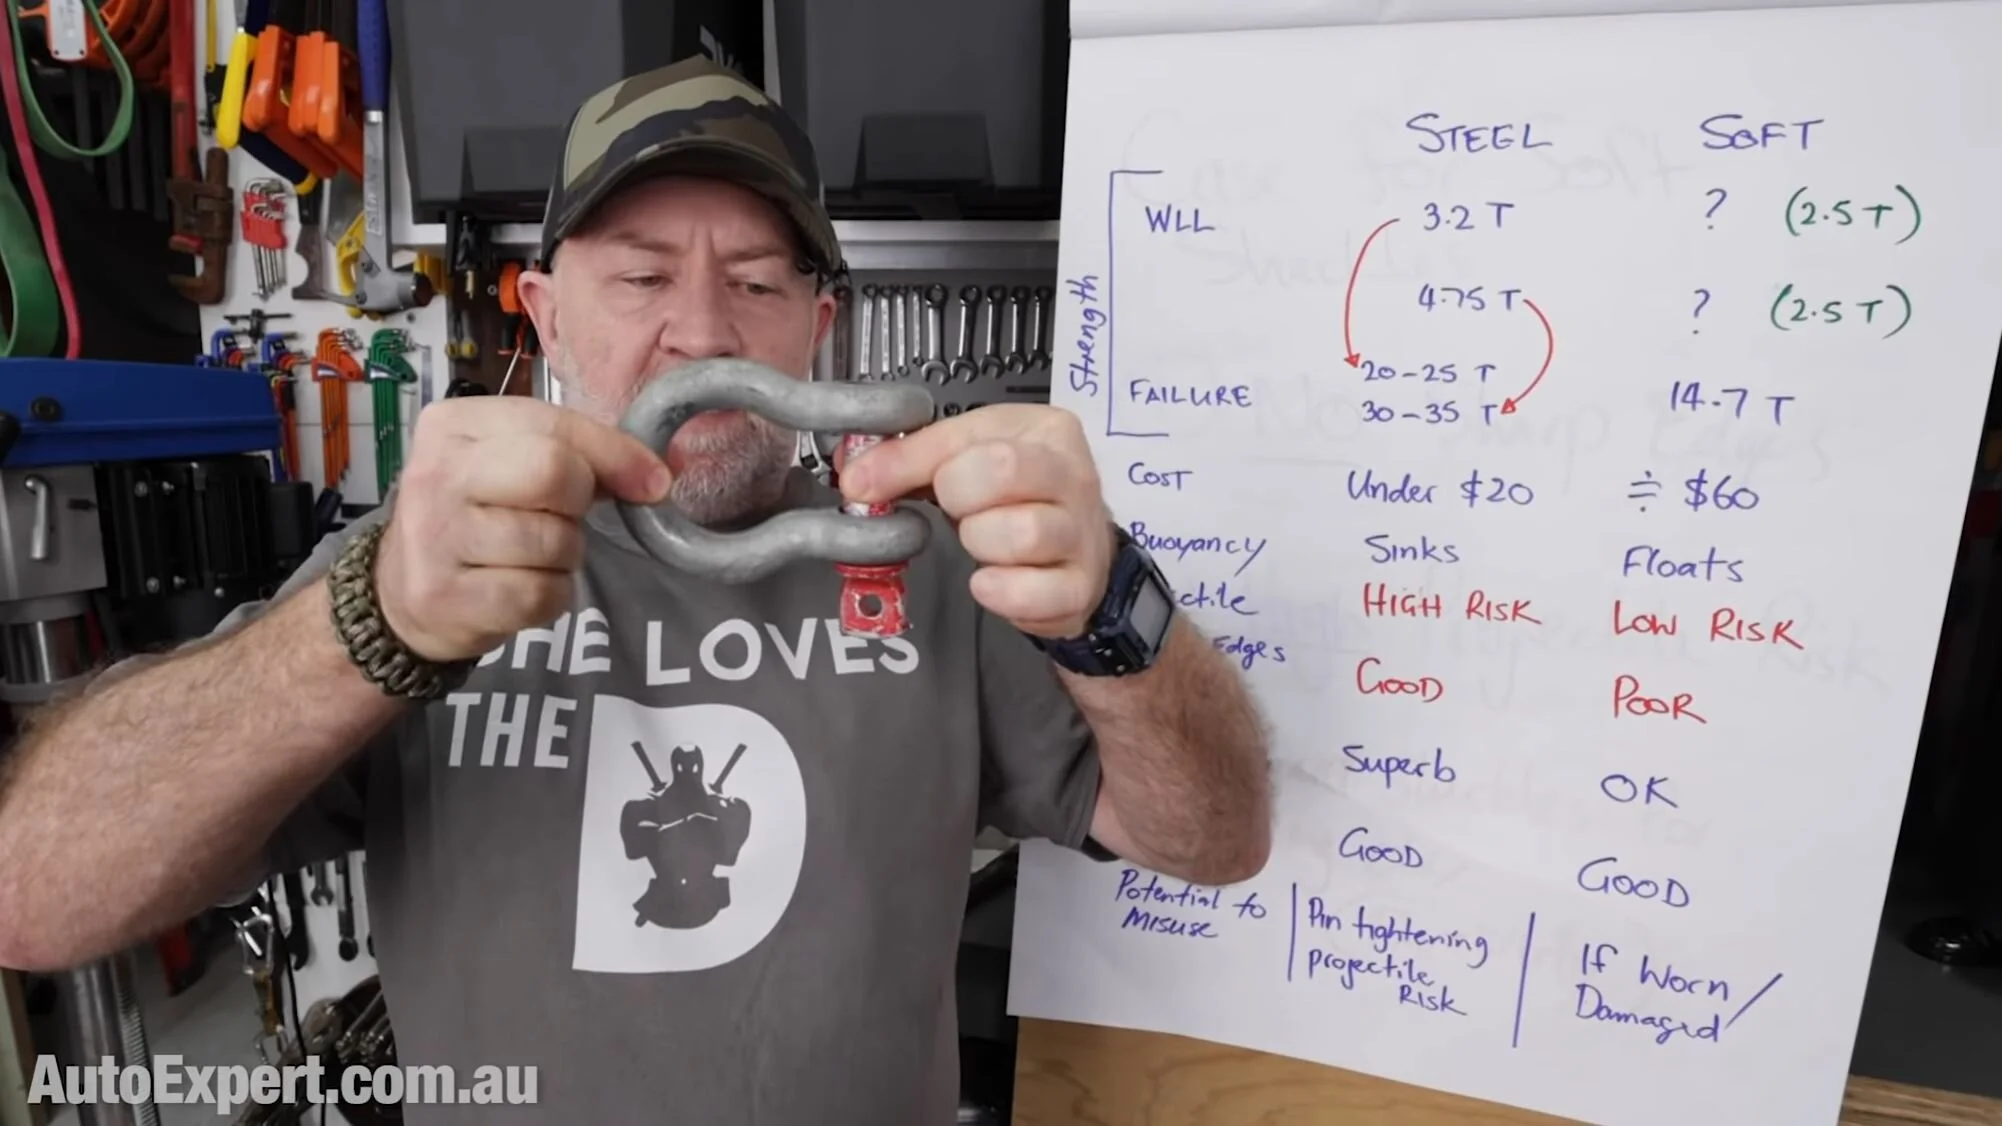 STEEL SOFT
WLL 3.2 T ? (2.5 T)
4.75 T ? (2.5 T)
Strength
20-25 T
FAILURE 30-35 T 14.7 T
Cost Under $20 ÷ $60
Buoyancy Sinks Floats
ctile HIGH RISK LOW RISK
Edges GOOD POOR
Superb OK
GOOD GOOD
Potential to Misuse
Pin tightening
projectile
Risk
If Worn/
Damaged
SHE LOVES
THE D
AutoExpert.com.au